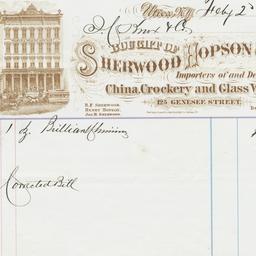 Utica, N.Y. Feby 2
J. C. Knox & Co
BOUGHT OF
SHERWOOD HOPSON
Importers of and De
China, Crockery and Glass W
125 GENESEE STREET,
R.F. SHERWOOD.
HENRY HOPSON.
JAS. H. SHERWOOD.
1 Brilliant Chimney
Corrected Bill